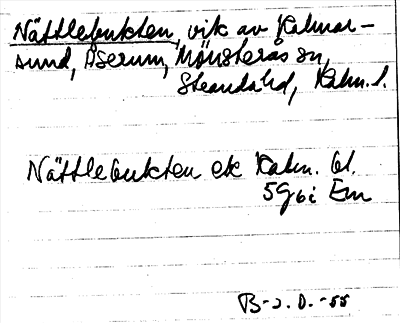 Nättlebukten, vik av Kalmar-
sund, Åserum, Mönsterås sn,
Stranda hd, Kalm. l.
Nättlebukten ek Kalm. bl.
59 6 i Em
B-J. D. -55